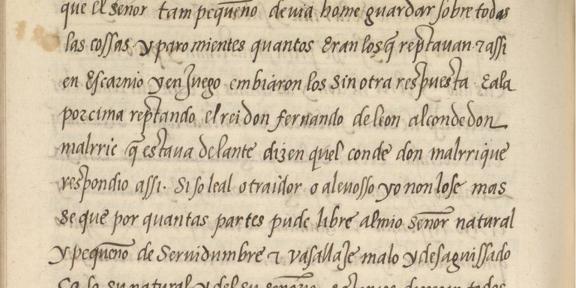 que el señor tam pequeño devia home guardar sobre todas
las cossas. y paro mientes quantos eran los q̃ reptavan. ⁊ assi
en escarnio y en Juego embiaron los sin otra respuesta. E ala
porcima reptando el rei don fernando de leon al conde don
malrric q̃ estava delante dizen quel conde don malrrique
respondio assi. Si so leal o traidor o alevosso yo non lo se mas
se que por quantas partes pude libre al mio señor natural
y pequeño de Servidumbre ⁊ vasallaJe malo y desaguissado